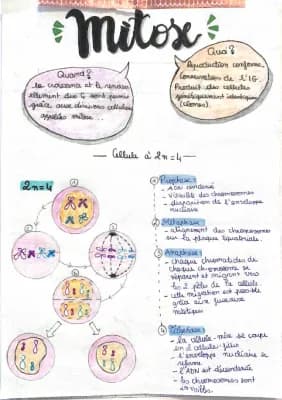 Mitose
Quand?
... la croissance et le renouv-
ellement des C sont permis
grâce aux divisions cellulaires
appelées mitose...
Quoi?
Reproduction conforme.
Conservation de l'IG.
Produit des cellules
génétiquement identiques
(clones).
— Cellule à 2n=4 —
2n=4
1
2
3
4
① Prophase:
- ADN condensé
- visibilité des chromosomes
- disparition de l'enveloppe
nucléaire
② Métaphase:
- alignement des chromosomes
sur la plaque équatoriale.
③ Anaphase:
- chaque chromatides de
chaque chromosome se
séparent et migrent vers
les 2 pôles de la cellule
- cette migration est possible
grâce aux fuseaux
mitotiques
④ Télophase:
- la cellule-mère se coupe
en 2 cellules-filles
- l'enveloppe nucléaire se
reforme
- l'ADN est décondensé
- les chromosomes sont